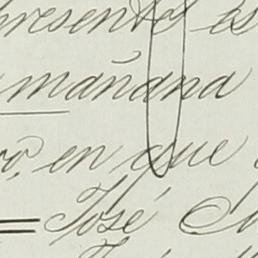 presente es
mañana
en que
José